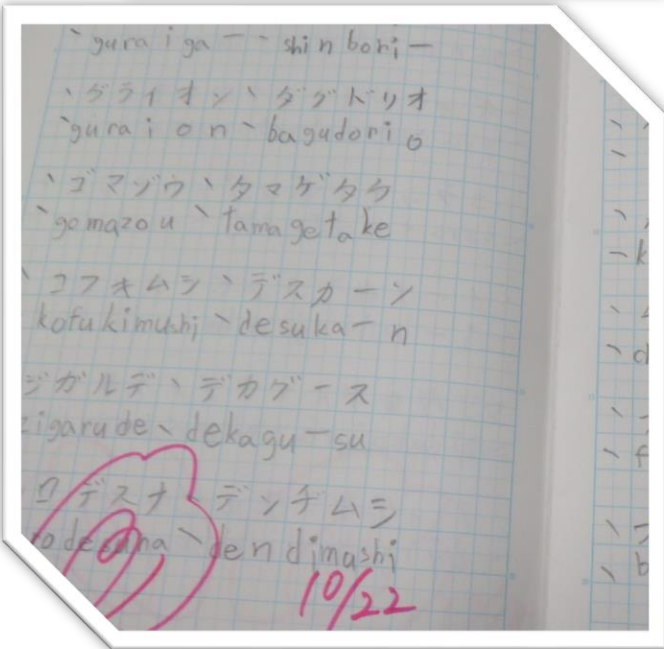 、guraiga一、shinbori一
、グライオン、ダグドリオ
、guraion、bagudorio
、ゴマゾウ、タマゲタケ
、gomazou、tamagetake
、コフキムシ、デスカーン
kofukimushi、desuka一n
ジガルデ、デカグース
zigarude、dekagu一su
ロデスナ、デンヂムシ
rodesuna、dendimushi
10/22